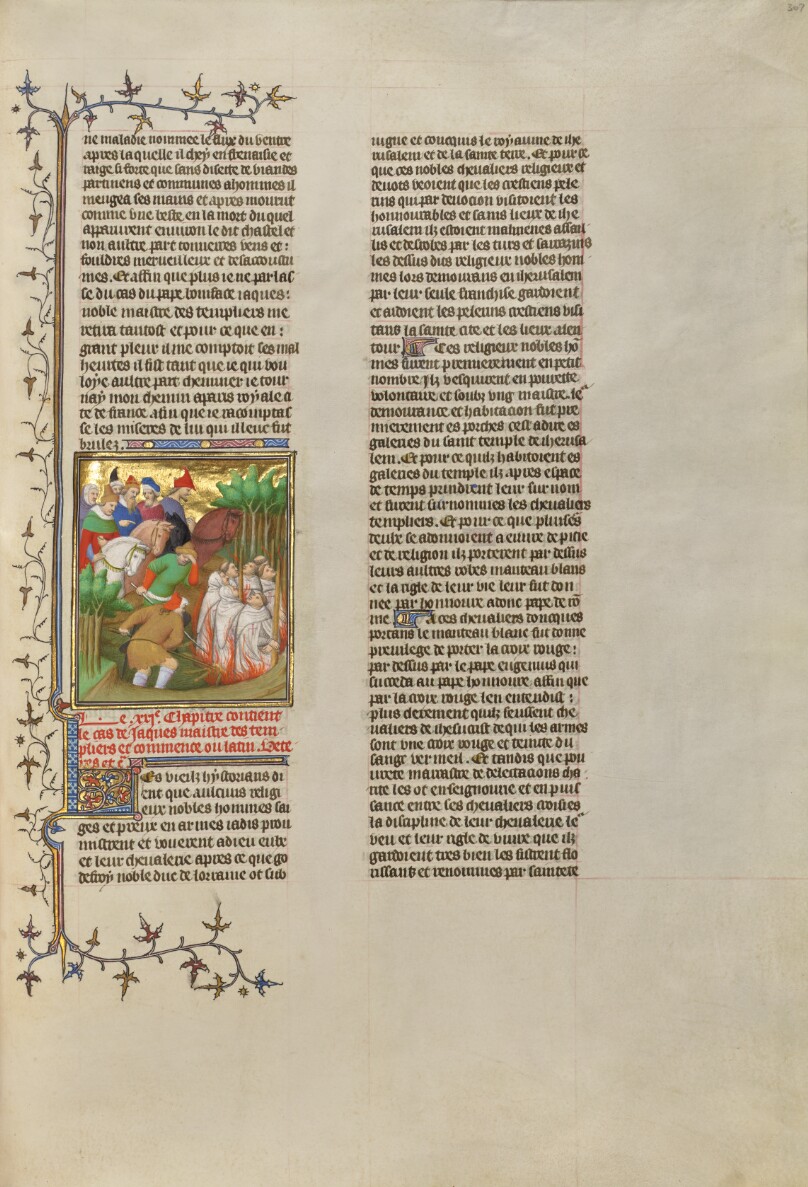 307
ne maladie nommee le flux du ventre
apres laquelle il chey en frenaisie et
rarge si forte que sans disette de viandes
partinens et communes a hommes il
menga ses mains et apres mourut
comme une beste en la mort du quel
apparurent enuiron le dit chastel et
non aultre part tonnerres vens et
fouldres merueilleux et desacoustu
mes. Et affin que plus ie ne parlas
se du cas du pape boniface iaques
noble maistre des templiers me
retira tantost et pour ce que en
grant pleur il me comptoit ses mal
heurtes il fist tant que ie qui vou
loye aultre part cheminer ie tour
nay mon chemin a paris royale ci
te de france afin que ie racomptas
se les miseres de lui qui illeuc fut
brulez.
e .xxi.e Chapitre contient
le cas de Jaques maistre des tem
pliers et commence ou latin. Vete
res et c̄
Es vieilz hystorians di
ent que aulcuns religi
eux nobles hommes sai
ges et preux en armes iadis prou
mistrent et vouerent a dieu eulx
et leur cheualerie apres ce que go
defroy noble duc de lorraine ot sub
iugue et conquis le royaume de ihe
rusalem et de la sainte terre. Et pour ce
que ces nobles cheualiers religieux et
deuots veoient que les crestiens pele
rins qui par deuocion visitoient les
honnourables et sains lieux de ihe
rusalem ilz estoient malmenes assail
lis et desrobes par les turs et sarrazins
les dessus dits religieux nobles hom
mes lors demourans en iherusalem
par leur seule franchise gardoient
et aidoient les pelerins crestiens visi
tans la sainte cite et les lieux alen
tour Ces religieux nobles ho
mes furent premierement en petit
nombre Ilz vesquirent en pourete
volontaire et soubz ung maistre. le
demourance et habitacion fut pre
mierement es porches cest a dire es
galeries du saint temple de iherusa
lem. Et pour ce quilz habitoient es
galeries du temple ilz apres espace
de temps prindrent leur surnom
et furent surnommes les cheualiers
templiers. Et pour ce que pluises
deulx se adonnoient a euure de pitie
et de religion ilz porterent par dessus
leurs aultres robes manteau blanc
et la rigle de leur vie leur fut don
nee par honnoure adonc pape de rō
me A ces cheualiers doncques
portans le manteau blanc fut donne
preuilege de porter la croix rouge
par dessus par le pape eugenius qui
succeda au pape honnoure affin que
par la croix rouge len entendist
plus clerement quilz feussent che
ualiers de ihesucrist de qui les armes
sont une croix rouge et teinte du
sang vermeil. Et tandis que pou
urete marrastre de delectacions cha
rite les ot en seigneurie et en puis
sance entre ses cheualiers croisies
la discipline de leur cheualerie le
veu et leur rigle de viure que ilz
gardoient tres bien les firent flo
rissans et renommes par saintete